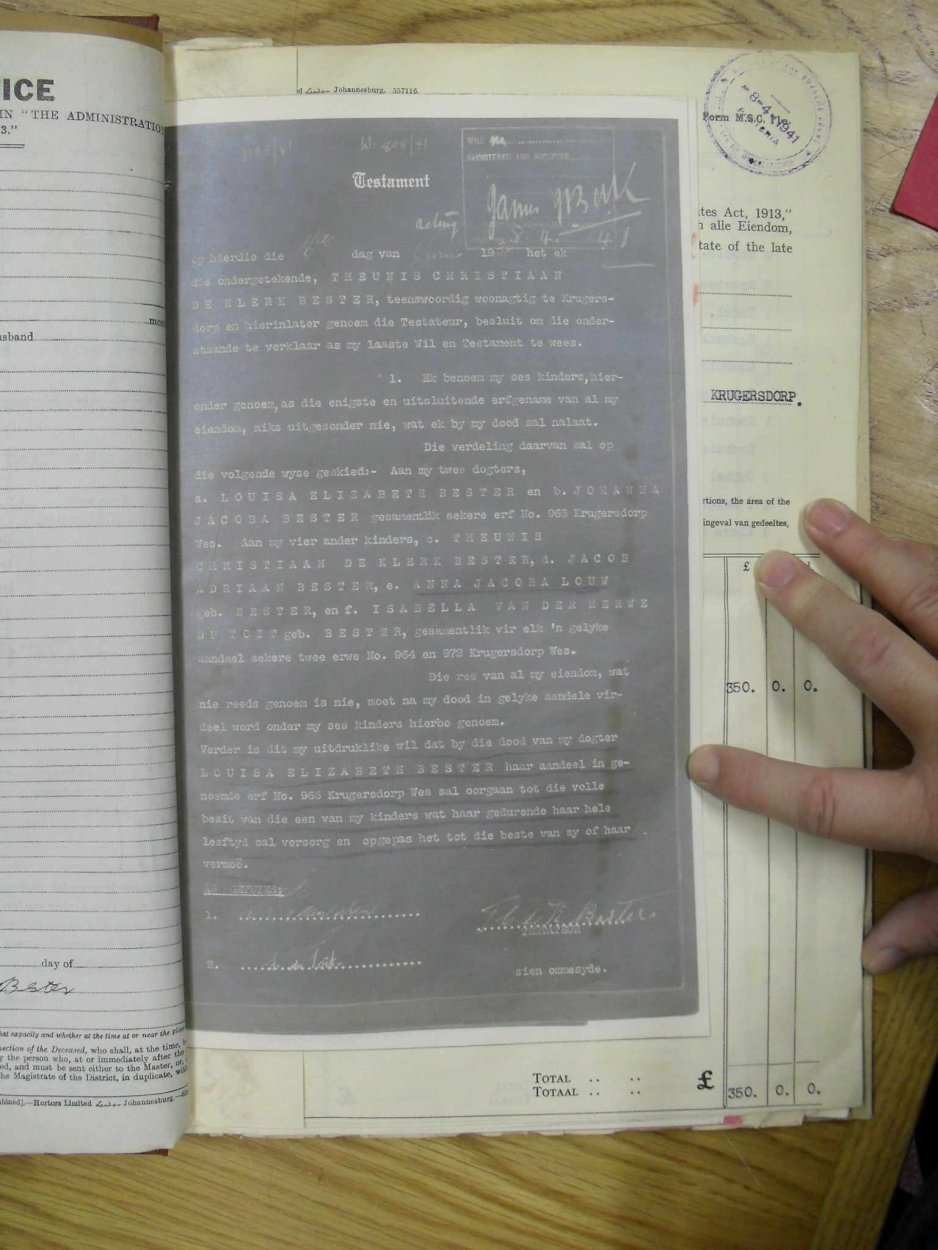 ICE
IN "THE ADMINISTRATIO
3."
mon
usband
day of
Bester
hat capacity and whether at the time at or near the place
section of the Deceased, who shall, at the time,
y the person who, at or immediately after the
ed, and must be sent either to the Master, or,
he Magistrate of the District, in duplicate, with
bined].—Hortors Limited Johannesburg.
Johannesburg. 357116.
Form M.S.C.
8-4-1941
PRETORIA
REGISTERED AND
Testament
acting
8. 4. 41
Op hierdie die dag van 19 het ek
die ondergetekende, THEUNIS CHRISTIAAN
DE KLERK BESTER, teenswoordig woonagtig te Krugers-
dorp en hierinlater genoem die Testateur, besluit om die onder-
staande te verklaar as my laaste Wil en Testament te wees.
1. Ek benoem my ses kinders, hier-
onder genoem, as die enigste en uitsluitende erfgename van al my
eiendom, niks uitgesonder nie, wat ek by my dood sal nalaat.
Die verdeling daarvan sal op
die volgende wyse geskied:- Aan my twee dogters,
a. LOUISA ELIZABETH BESTER en b. JOHANNA
JACOBA BESTER gesamentlik sekere erf No. 965 Krugersdorp
Wes. Aan my vier ander kinders, c. THEUNIS
CHRISTIAAN DE KLERK BESTER, d. JACOB
ADRIAAN BESTER, e. ANNA JACOBA LOUW
geb. BESTER, en f. ISABELLA VAN DER MERWE
DU TOIT geb. BESTER, gesamentlik vir elk 'n gelyke
aandeel sekere twee erwe No. 964 en 972 Krugersdorp Wes.
Die res van al my eiendom, wat
nie reeds genoem is nie, moet na my dood in gelyke aandele vir-
deel word onder my ses kinders hierbo genoem.
Verder is dit my uitdruklike wil dat by die dood van my dogter
LOUISA ELIZABETH BESTER haar aandeel in ge-
noemde erf No. 965 Krugersdorp Wes sal oorgaan tot die volle
besit van die een van my kinders wat haar gedurende haar hele
leeftyd sal versorg en opgepas het tot die beste van sy of haar
vermoë.
AS GETUIE:
1.
2. du Toit
Bester
TESTATEUR
sien ommesyde.
tes Act, 1913,"
n alle Eiendom,
tate of the late
KRUGERSDORP.
rtions, the area of the
ingeval van gedeeltes,
£
350. 0. 0.
TOTAL .. .. £
TOTAAL .. .. 350. 0. 0.